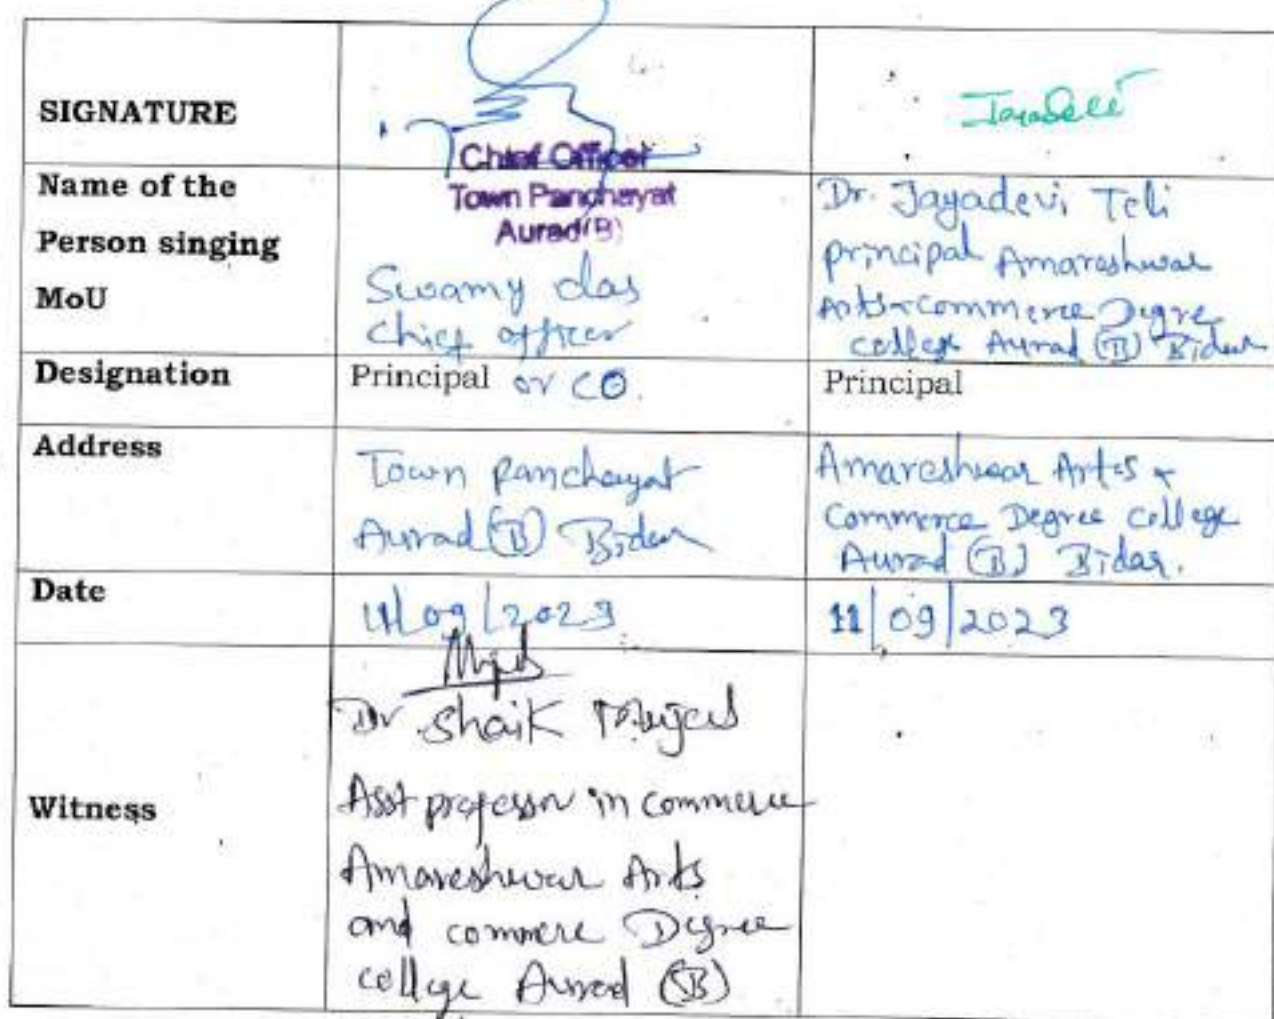 SIGNATURE
Chief Officer
Town Panchayat
Aurad(B)
Name of the
Person singing
MoU
Swamy das
Chief officer
Dr. Jayadevi Teli
principal Amareshwar
Arts & commerce Degre
college Aurad (B) Bidar
Designation
Principal or CO.
Principal
Address
Town panchayat
Aurad (B) Bidar
Amareshwar Arts &
Commerce Degree College
Aurad (B) Bidar.
Date
11/09/2023
11/09/2023
Witness
Dr Shaik
Asst professor in commerce
Amareshwar Arts
and commere Degree
college Aurad (B)